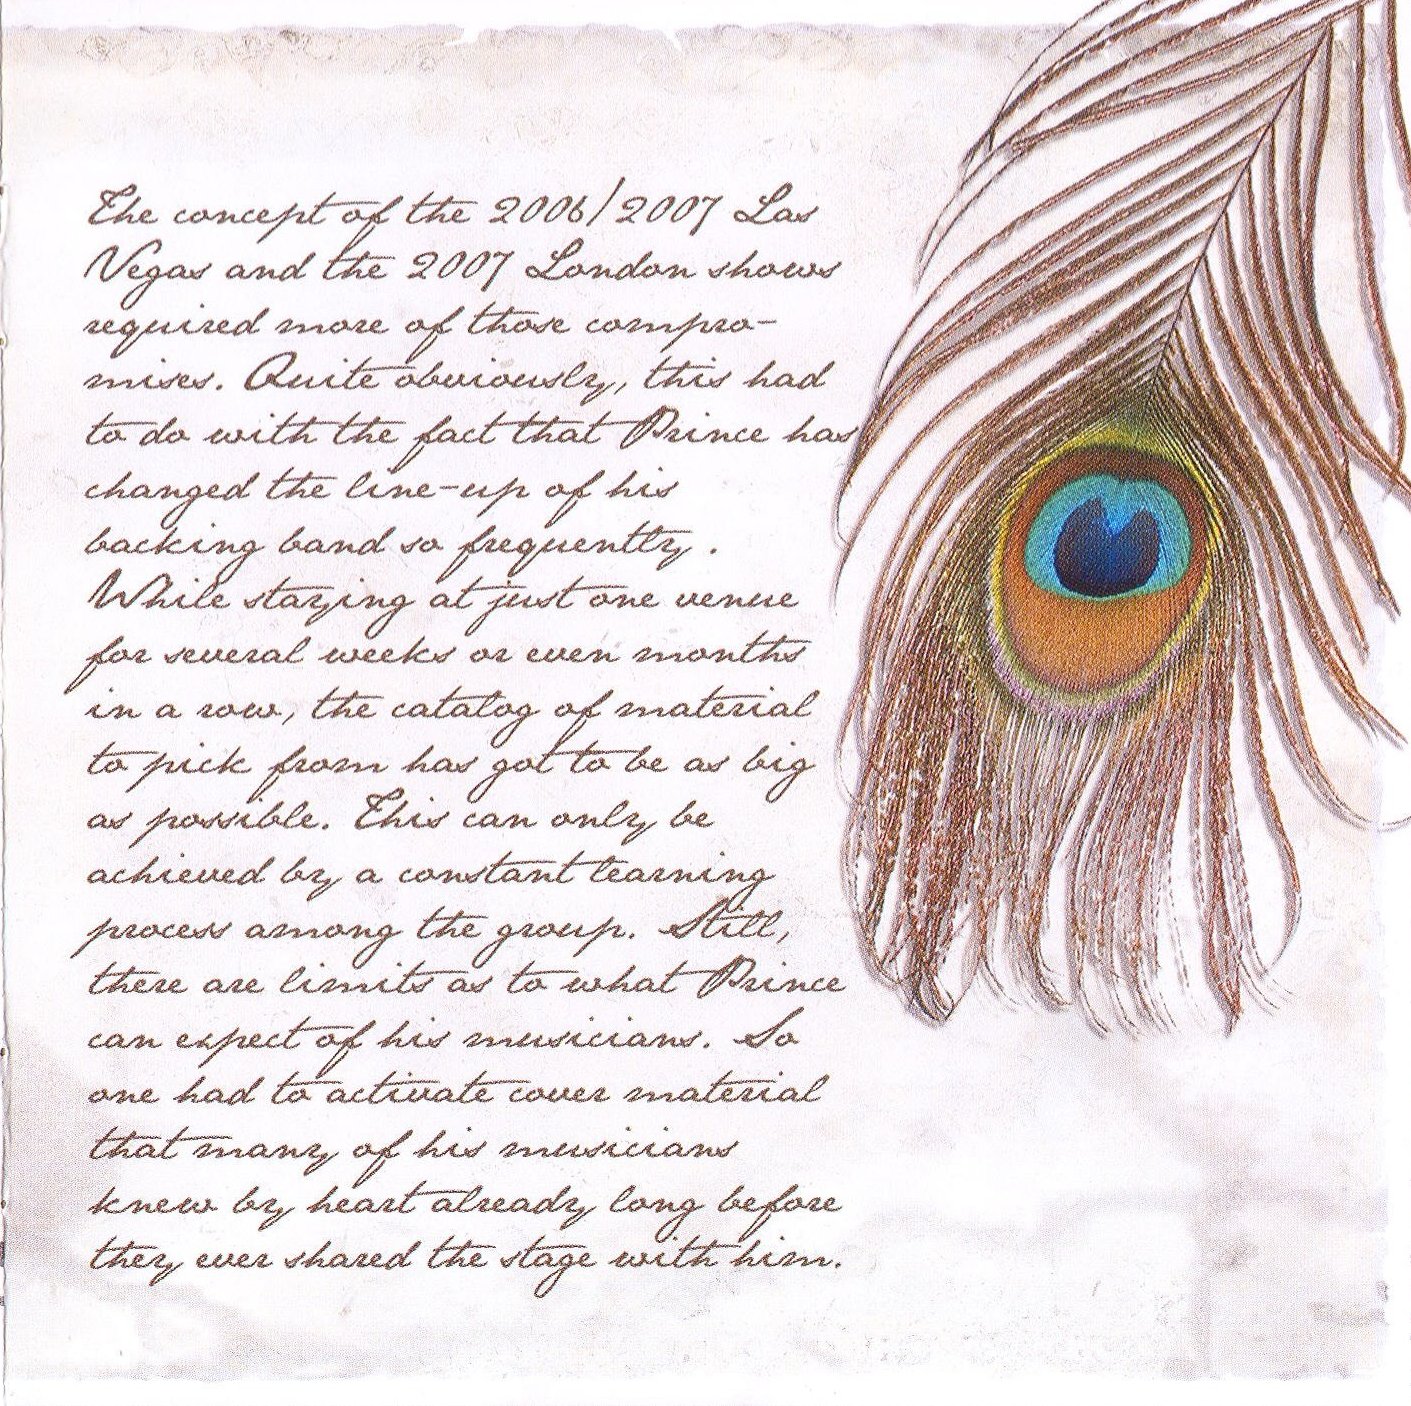 The concept of the 2006/2007 Las
Vegas and the 2007 London shows
required more of those compro-
mises. Quite obviously, this had
to do with the fact that Prince has
changed the line-up of his
backing band so frequently .
While staying at just one venue
for several weeks or even months
in a row, the catalog of material
to pick from has got to be as big
as possible. This can only be
achieved by a constant learning
process among the group. Still,
there are limits as to what Prince
can expect of his musicians. So
one had to activate cover material
that many of his musicians
knew by heart already long before
they ever shared the stage with him.